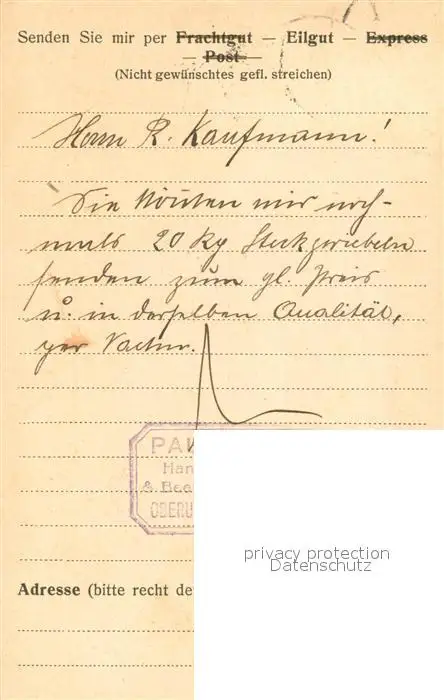 Senden Sie mir per Frachtgut — Eilgut — Express
— Post —
(Nicht gewünschtes gefl. streichen)
Herrn R. Kaufmann!
Sie könten mir noch-
mals 20 Kg Steckzwiebeln
senden zum gl. Preis
u. in derselben Qualität,
per Nachn.
PA
Han
& Bee
OBERU
privacy protection
Datenschutz
Adresse (bitte recht de